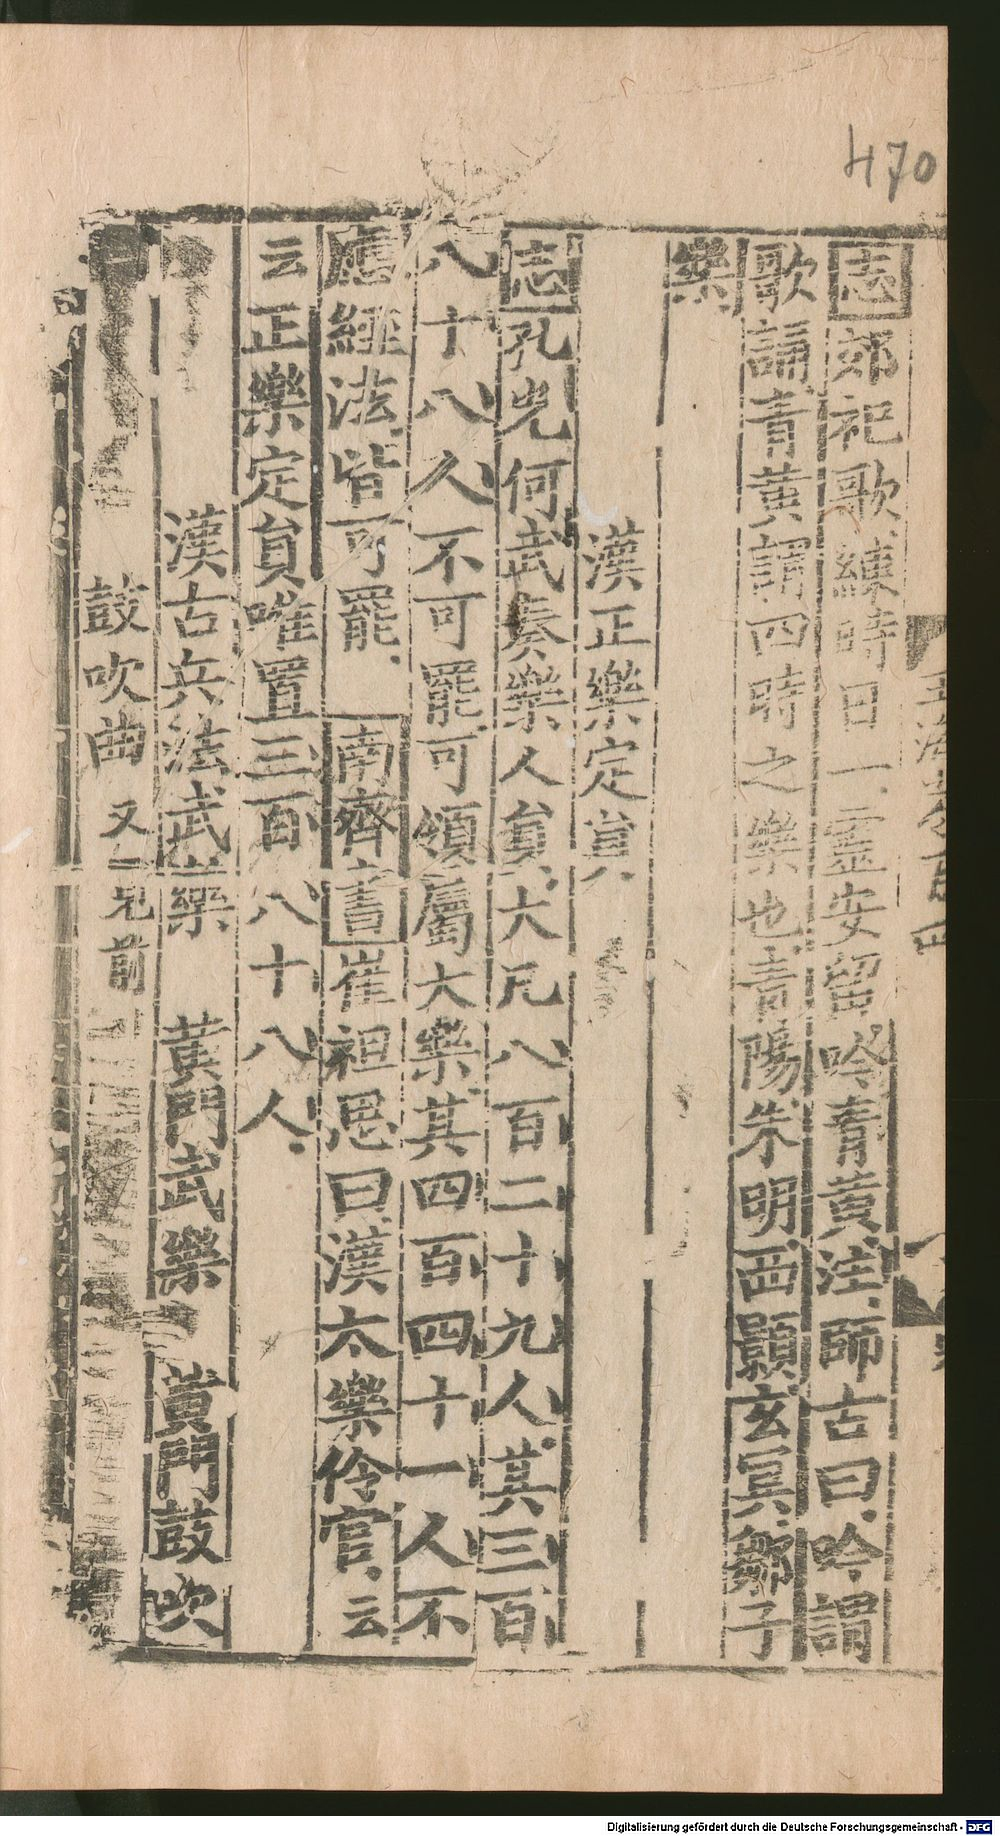 470
志郊祀歌練時日一靈安留吟青黄注師古曰吟謂
歌誦青黄謂四時之樂也青陽朱明西顥玄冥鄒子
樂
漢正樂定貟
志孔光何武奏樂人貟大凡八百二十九人其三百
八十八人不可罷可領屬大樂其四百四十一人不
應經法皆可罷 南齊書崔祖思曰漢太樂伶官云
云正樂定貟唯置三百八十八人
漢古兵法武樂 黄門武樂 黄門鼓吹
鼓吹曲 又見前
Digitalisierung gefördert durch die Deutsche Forschungsgemeinschaft - DFG